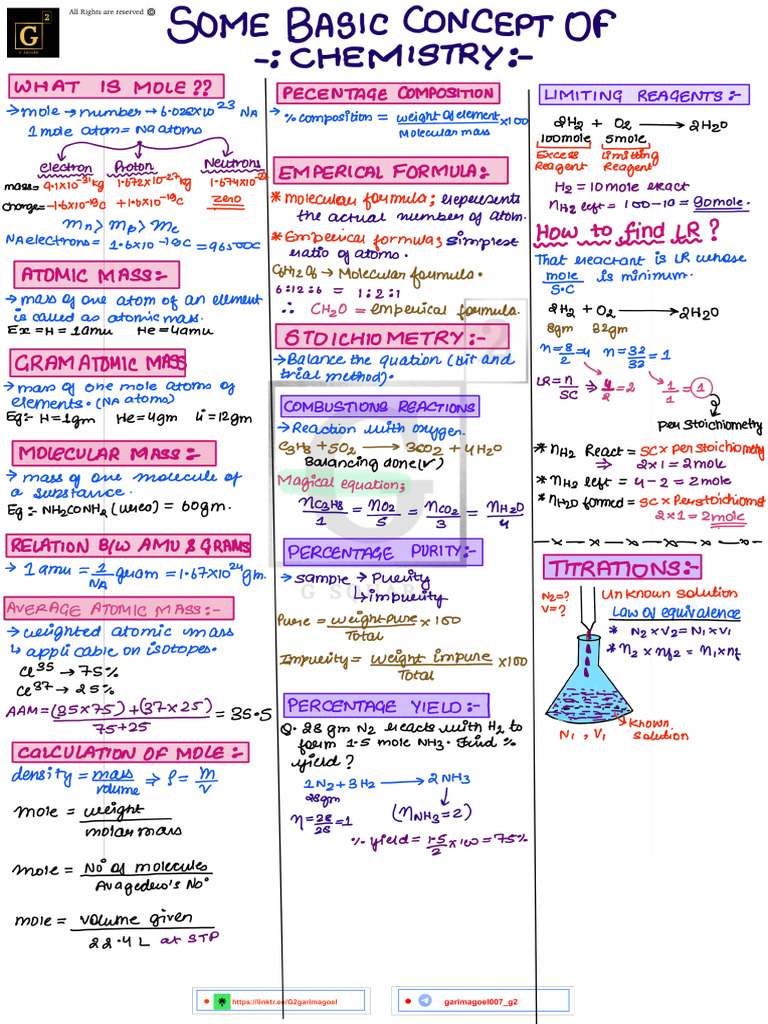 2
G
G SQUARE
All Rights are reserved ©
SOME BASIC CONCEPT OF
-: CHEMISTRY:-
WHAT IS MOLE??
→ mole → number → 6.022×10²³ NA
1 mole atom = NA atoms
electron Proton Neutrons
mass= 9.1×10⁻³¹kg 1.672×10⁻²⁷kg 1.674×10⁻²⁷
charge= -1.6×10⁻¹⁹C +1.6×10⁻¹⁹C zero
Mn > Mp > Me
NA electrons = 1.6×10⁻¹⁹C = 96500C
ATOMIC MASS:-
→ mass of one atom of an element
is called as atomic mass.
Ex = H = 1amu He = 4amu
GRAM ATOMIC MASS
→ mass of one mole atoms of
elements. (NA atoms)
Eg:- H = 1gm He = 4gm Li = 12gm
MOLECULAR MASS:-
→ mass of one molecule of
a substance.
Eg:- NH2CONH2 (urea) = 60gm.
RELATION B/W AMU & GRAMS
→ 1 amu = 1/NA gram = 1.67×10²⁴gm.
AVERAGE ATOMIC MASS:-
→ weighted atomic mass
↳ applicable on isotopes.
Cl³⁵ → 75%
Cl³⁷ → 25%
AAM = (35×75)+(37×25)/75+25 = 35.5
CALCULATION OF MOLE:-
density = mass/volume ⇒ ρ = m/v
mole = weight/molar mass
mole = No° of molecules/Avagedro's No°
mole = volume given/22.4 L at STP
PECENTAGE COMPOSITION
→ % composition = weight of element/Molecular mass ×100
EMPERICAL FORMULA:
* molecular formula; represents
the actual number of atom.
* Emperical formula; simplest
ratio of atoms.
C6H12O6 → Molecular formula.
6:12:6 = 1:2:1
∴ CH2O = emperical formula.
STOICHIOMETRY:-
→ Balance the quation (hit and
trial method).
COMBUSTIONS REACTIONS
→ Reaction with oxygen.
C3H8 + 5O2 → 3CO2 + 4H2O
Balancing done(✓)
Magical equation;
nC3H8/1 = nO2/5 = nCO2/3 = nH2O/4
PERCENTAGE PURITY:-
→ sample → Purity
↳ impurity
G SQUARE
Pure = weight pure/Total ×100
Impurity = weight impure/Total ×100
PERCENTAGE YIELD:-
Q. 28 gm N2 reacts with H2 to
form 1.5 mole NH3. Find %
yield?
1N2 + 3H2 → 2NH3
28gm
n = 28/28 = 1 (nNH3 = 2)
% yield = 1.5/2 ×100 = 75%
LIMITING REAGENTS:-
2H2 + O2 → 2H2O
100mole 5mole
Excess Limiting
Reagent Reagent
H2 = 10 mole react
nH2 left = 100-10 = 90mole.
How to find LR?
That reactant is LR whose
mole/S.C is minimum.
2H2 + O2 → 2H2O
8gm 32gm
n = 8/2 = 4 n = 32/32 = 1
LR = n/SC ⇒ 4/2 = 2 1/1 = 1
per Stoichiometry
* nH2 React = SC × per stoichiometry
⇒ 2×1 = 2mole
* nH2 left = 4-2 = 2mole
* nH2O formed = SC × Per stoichiomet
2×1 = 2mole
TITRATIONS:-
N2=? Unknown solution
V=? Law of equivalence
* N2×V2 = N1×V1
* n2×nf2 = n1×nf
N1, V1 Known
solution
https://linktr.ee/G2garimagoel
garimagoel007_g2